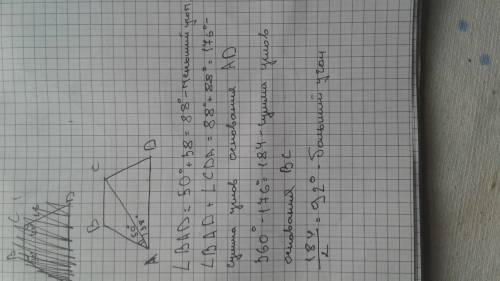 B C
A D
B C
50°
38°
A D
∠BAD = 50° + 38 = 88° - меньший угол
∠BAD + ∠CDA = 88° + 88° = 176° -
сумма углов основания AD
360° - 176° = 184 - сумма углов
основания BC
184/2 = 92° - больший угол